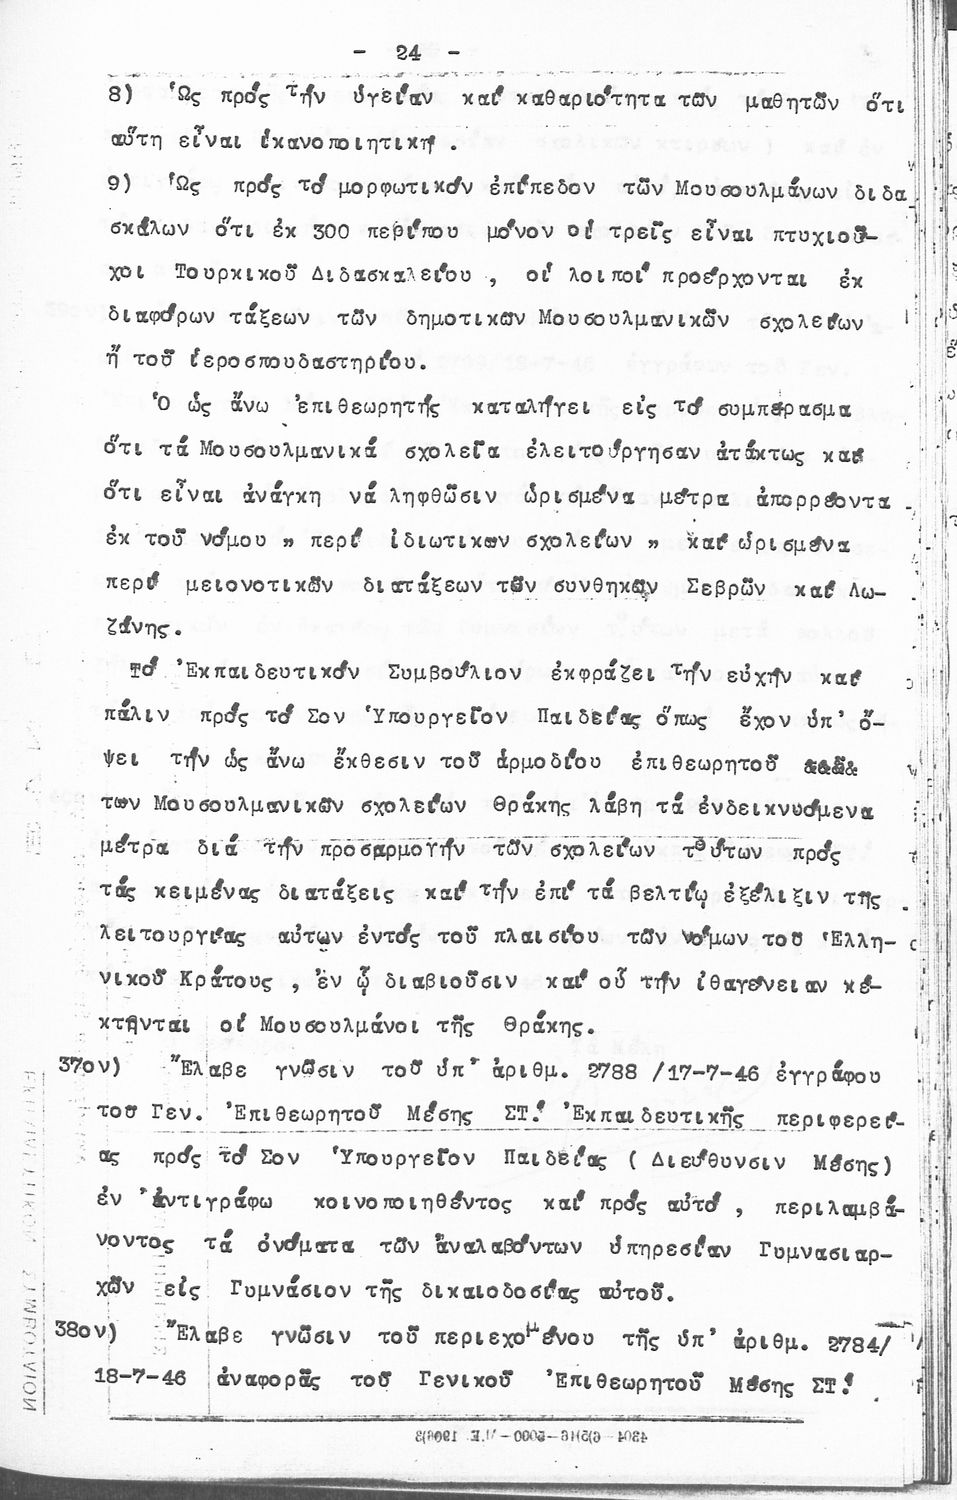 - 24 -
8) Ὡς πρός τήν ὑγείαν καί καθαριότητα τῶν μαθητῶν ὅτι
αὕτη εἶναι ἱκανοποιητική .
9) Ὡς πρός τό μορφωτικόν ἐπίπεδον τῶν Μουσουλμάνων διδα
σκάλων ὅτι ἐκ 300 περίπου μόνον οἱ τρεῖς εἶναι πτυχιοῦ-
χοι Τουρκικοῦ Διδασκαλείου , οἱ λοιποί προέρχονται ἐκ
διαφόρων τάξεων τῶν δημοτικῶν Μουσουλμανικῶν σχολείων
ἤ τοῦ ἱεροσπουδαστηρίου.
Ὁ ὡς ἄνω ἐπιθεωρητής καταλήγει εἰς τό συμπέρασμα
ὅτι τά Μουσουλμανικά σχολεῖα ἐλειτούργησαν ἀτάκτως καί
ὅτι εἶναι ἀνάγκη νά ληφθῶσιν ὡρισμένα μέτρα ἀπορρέοντα
ἐκ τοῦ νόμου " περί ἰδιωτικῶν σχολείων " καί ὡρισμένα
περί μειονοτικῶν διατάξεων τῶν συνθηκῶν Σεβρῶν καί Λω-
ζάνης.
Τό Ἐκπαιδευτικόν Συμβούλιον ἐκφράζει τήν εὐχήν καί
πάλιν πρός τό Σον Ὑπουργεῖον Παιδείας ὅπως ἔχον ὑπ' ὄ-
ψει τήν ὡς ἄνω ἔκθεσιν τοῦ ἁρμοδίου ἐπιθεωρητοῦ
τῶν Μουσουλμανικῶν σχολείων Θράκης λάβῃ τά ἐνδεικνυόμενα
μέτρα διά τήν προσαρμογήν τῶν σχολείων τούτων πρός
τάς κειμένας διατάξεις καί τήν ἐπί τά βελτίῳ ἐξέλιξιν τῆς
λειτουργίας αὐτῶν ἐντός τοῦ πλαισίου τῶν νόμων τοῦ Ἑλλη-
νικοῦ Κράτους , ἐν ᾧ διαβιοῦσιν καί οὗ τήν ἰθαγένειαν κέ-
κτηνται οἱ Μουσουλμάνοι τῆς Θράκης.
37ον) Ἔλαβε γνῶσιν τοῦ ὑπ' ἀριθμ. 2788 /17-7-46 ἐγγράφου
τοῦ Γεν. Ἐπιθεωρητοῦ Μέσης ΣΤ.' Ἐκπαιδευτικῆς περιφερεί-
ας πρός τό Σον Ὑπουργεῖον Παιδείας ( Διεύθυνσιν Μέσης)
ἐν ἀντιγράφω κοινοποιηθέντος καί πρός αὐτό , περιλαμβά-
νοντος τά ὀνόματα τῶν ἀναλαβόντων ὑπηρεσίαν Γυμνασιαρ-
χῶν εἰς Γυμνάσιον τῆς δικαιοδοσίας αὐτοῦ.
38ον) Ἔλαβε γνῶσιν τοῦ περιεχομένου τῆς ὑπ' ἀριθμ. 2784/
18-7-46 ἀναφορᾶς τοῦ Γενικοῦ Ἐπιθεωρητοῦ Μέσης ΣΤ.'